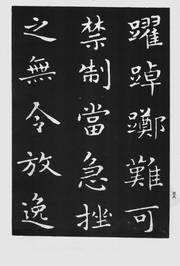 躍踔躑難可
禁制當急挫
之無令放逸